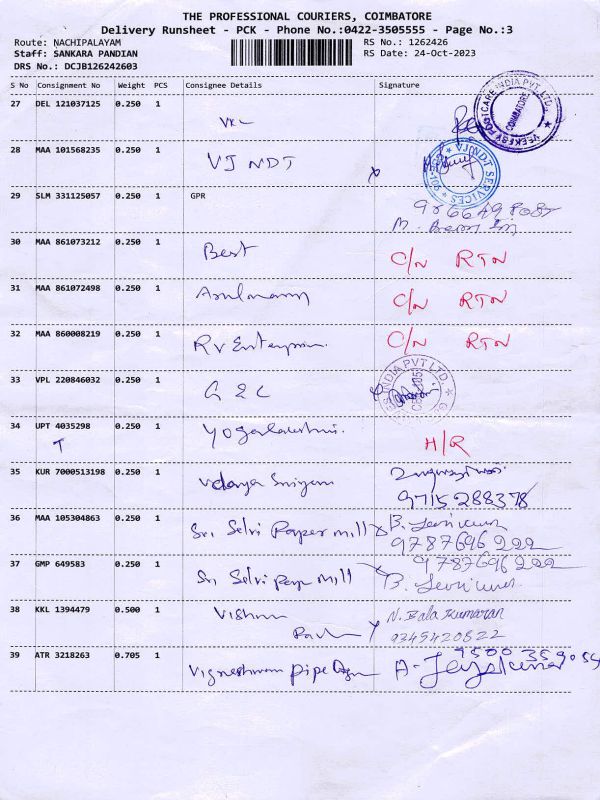 THE PROFESSIONAL COURIERS, COIMBATORE
Delivery Runsheet - PCK - Phone No.:0422-3505555 - Page No.:3
Route: NACHIPALAYAM
Staff: SANKARA PANDIAN
DRS No.: DCJB126242603
RS No.: 1262426
RS Date: 24-Oct-2023
S No Consignment No Weight PCS Consignee Details Signature
27 DEL 121037125 0.250 1 VKC
VEEKESY FOOTCARE INDIA PVT. LTD. COIMBATORE
28 MAA 101568235 0.250 1 VJ NDT
VJ NDT SERVICES
29 SLM 331125057 0.250 1 GPR
M.
30 MAA 861073212 0.250 1 Best C/N RTN
31 MAA 861072498 0.250 1 C/N RTN
32 MAA 860008219 0.250 1 RV Enterprises C/N RTN
33 VPL 220846032 0.250 1 G E C
INDIA PVT LTD.
34 UPT 4035298 0.250 1 Yogalakshmi. H/R
T
35 KUR 7000513198 0.250 1 Udaya
9715288378
36 MAA 105304863 0.250 1 Sri Selvi Paper mill B.
9787696222
37 GMP 649583 0.250 1 Sri Selvi Paper Mill 9787696222
B.
38 KKL 1394479 0.500 1 Vishnu N. Bala Kumaran
9345420822
39 ATR 3218263 0.705 1 Vigneshwara pipe A. Jeyakumar